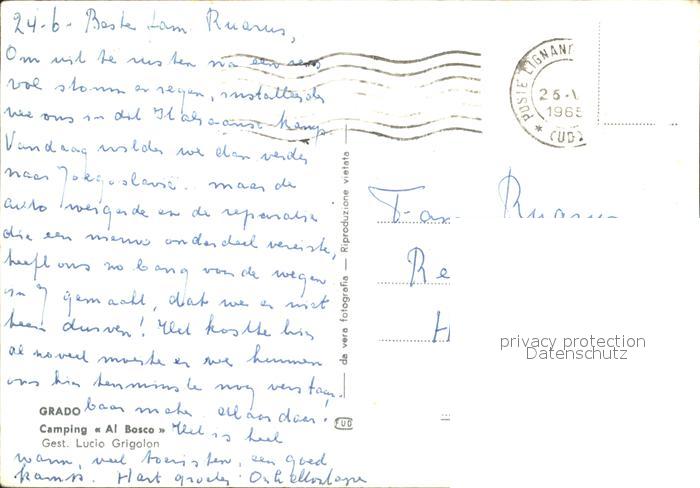 24-6- Beste fam Ruarus,
Om uit te rusten na een reis
vol storm en regen, installeerden
we ons in dit Italiaanse kamp
Vandaag wilden we dan verder
naar Joegoslavië.. maar de
auto weigerde en de reparatie
die een nieuw onderdeel vereiste,
heeft ons zo bang van de wegen
in J gemaakt, dat we er niet
heen durven! Het kostte hier
al zoveel moeite en we kunnen
ons hier tenminste nog verstaan-
baar maken. Maar daar!
Het is heel
warm, veel toeristen, een goed
kamp. Hart groeten
GRADO
Camping « Al Bosco »
Gest. Lucio Grigolon
da vera fotografia — Riproduzione vietata
FUD
POSTE LIGNANO
1965
(UD)
Fam Ruarus
Re
H
privacy protection
Datenschutz